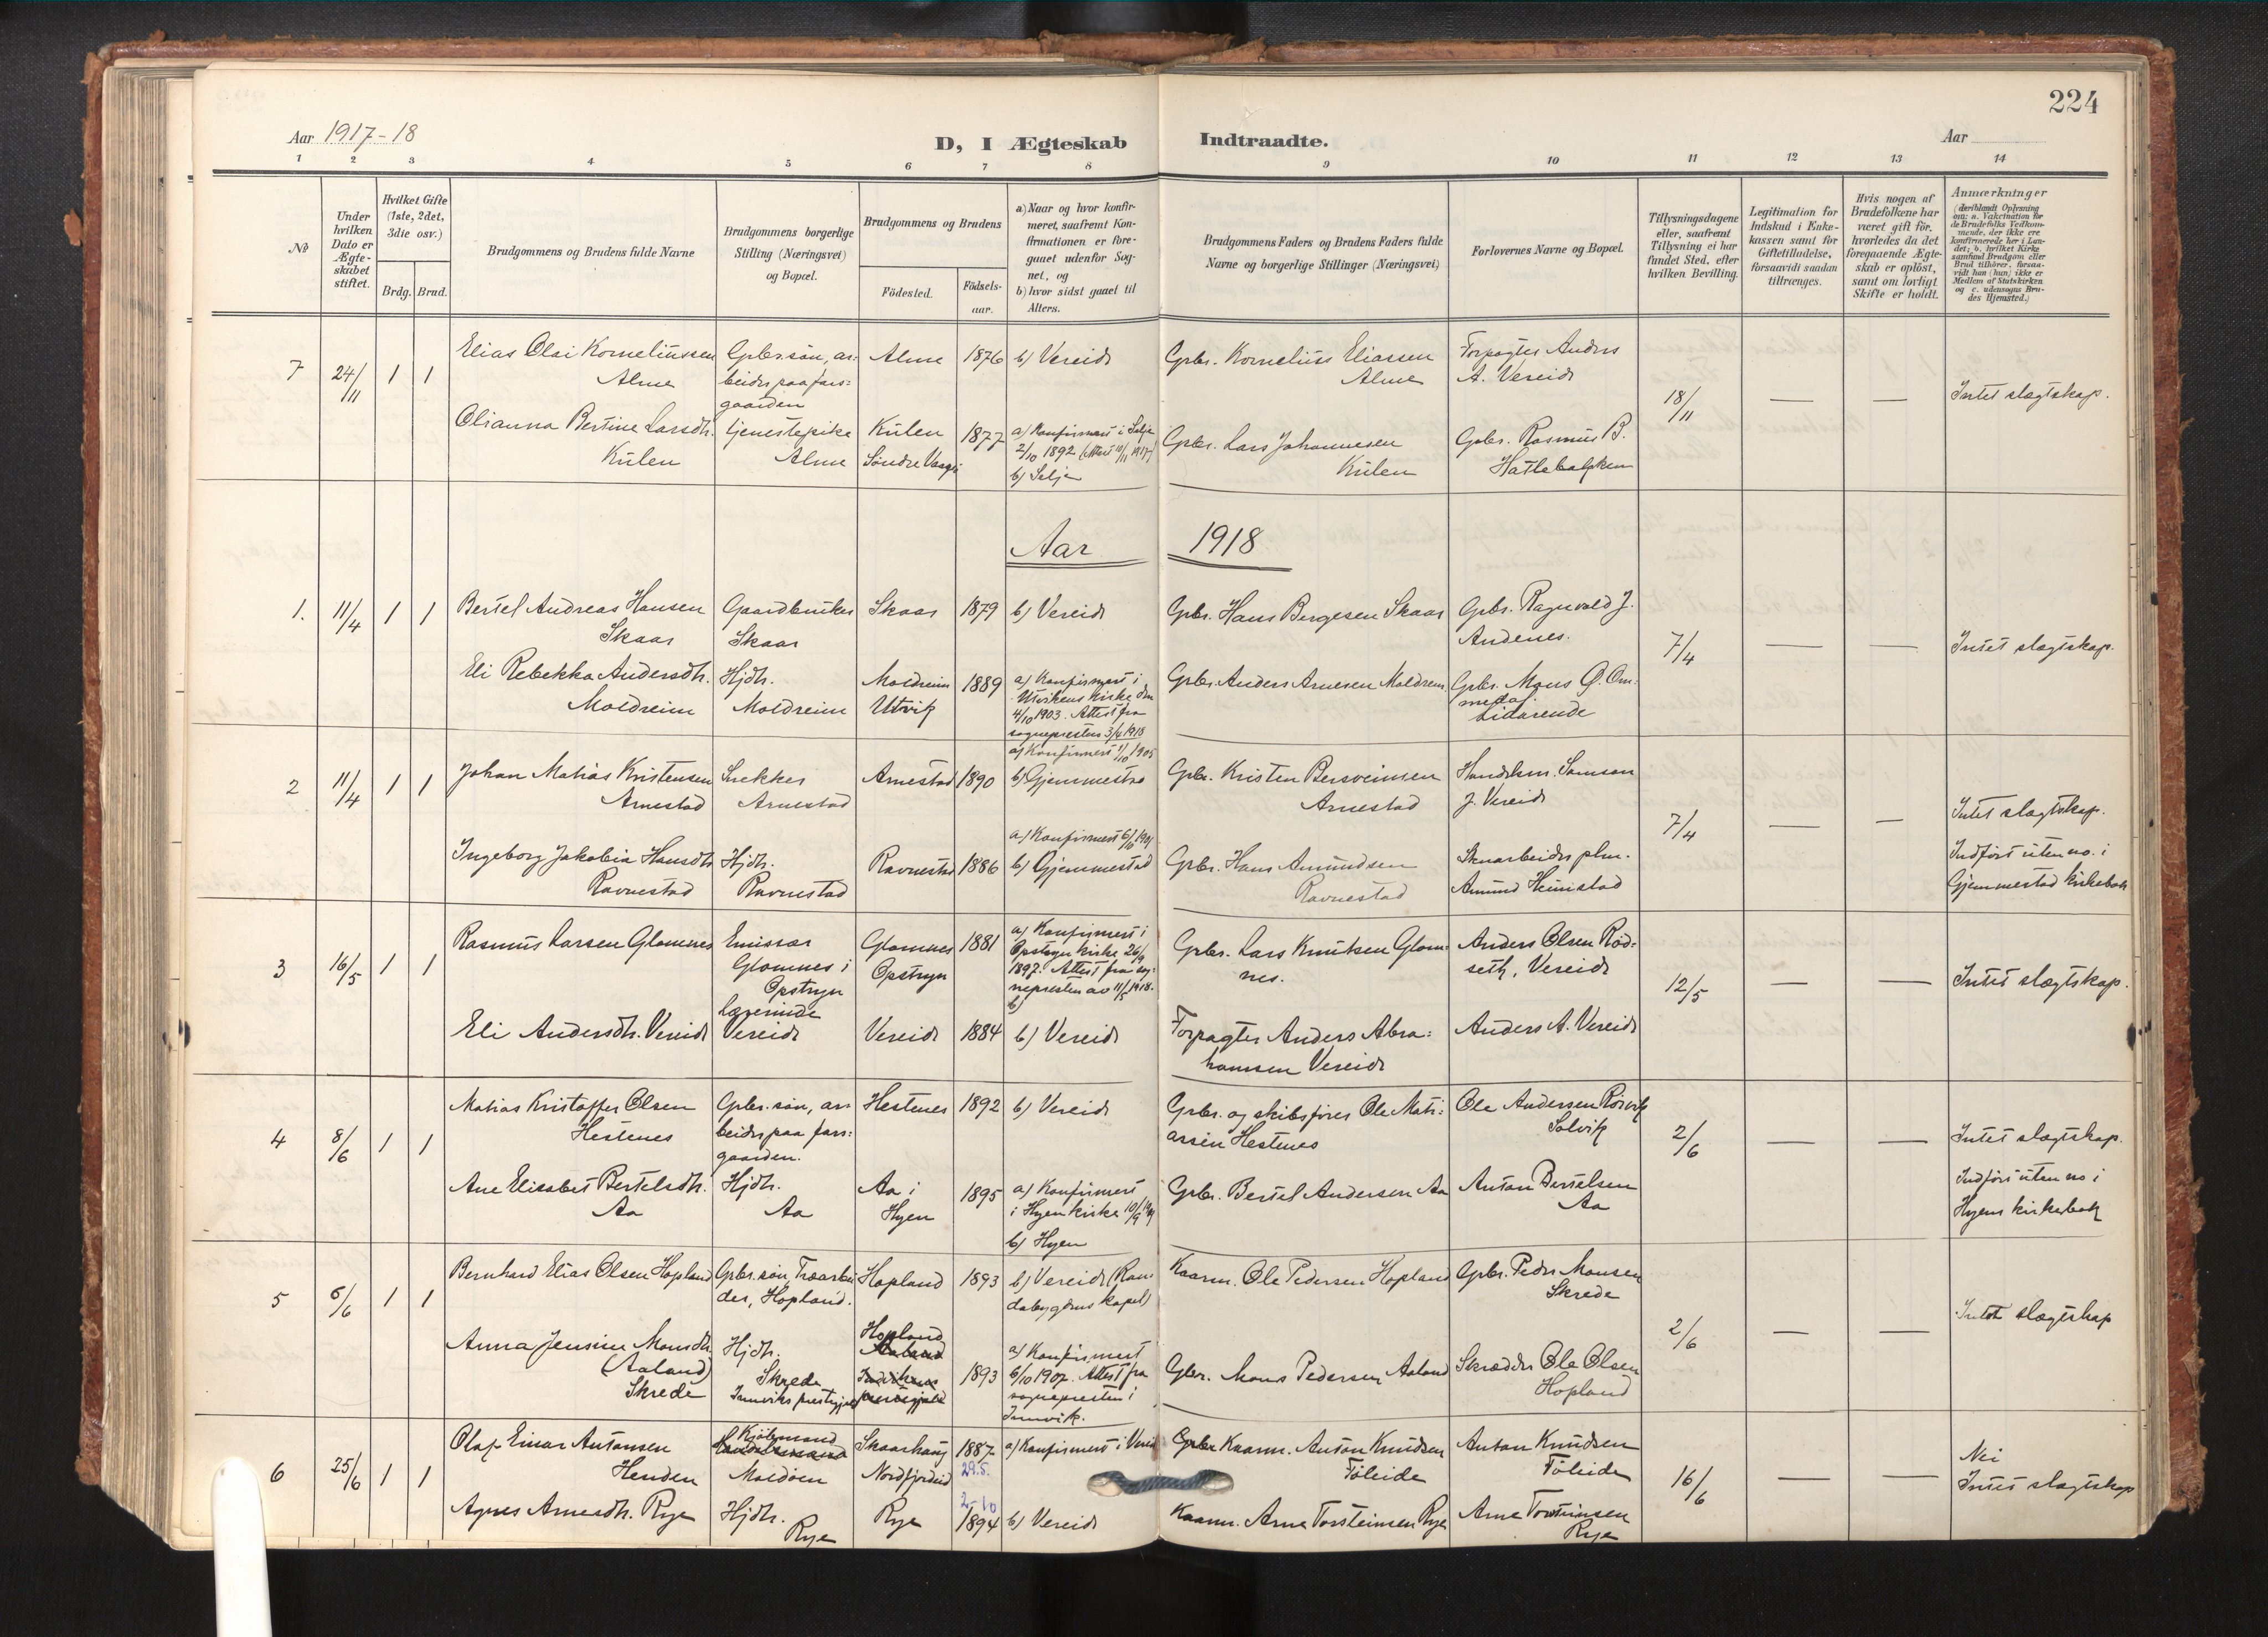 224
Aar 1917-18
D, I Ægteskab Indtraadte.
Aar
1 2 3 4 5 6 7 8 9 10 11 12 13 14
No
Under hvilken Dato er Ægte-skabet stiftet.
Hvilket Gifte (1ste, 2det, 3die osv.)
Brdg. Brud.
Brudgommens og Brudens fulde Navne
Brudgommens borgerlige Stilling (Næringsvei) og Bopæl.
Brudgommens og Brudens
Födested.
Födsels-aar.
a) Naar og hvor konfir-meret, saafremt Kon-firmationen er fore-gaaet udenfor Sog-net, og
b) hvor sidst gaaet til Alters.
Brudgommens Faders og Brudens Faders fulde Navne og borgerlige Stillinger (Næringsvei)
Forlovernes Navne og Bopæl.
Tillysningsdagene eller, saafremt Tillysning ei har fundet Sted, efter hvilken Bevilling.
Legitimation for Indskud i Enke-kassen samt for Giftetilladelse, forsaavidt saadan tiltrænges.
Hvis nogen af Brudefolkene har været gift før, hvorledes da det foregaaende Ægte-skab er oplöst, samt om lovligt Skifte er holdt.
Anmærkninger
(deriblandt Oplysning om: a. Vakcination for de Brudefolks Vedkom-mende, der ikke ere konfirmerede her i Lan-det; b. hvilket Kirke-samfund Brudgom eller Brud tilhörer, forsaa-vidt han (hun) ikke er Medlem af Statskirken og c. udensogns Bru-des Hjemsted.)
7 24/11 1 1 Elias Olai Korneliussen Gpbr.søn, ar- Alme 1876 b) Vereid Gpbr. Kornelius Eliassen Forpagter Anders
Alme beider paa fars- Alme A. Vereid
gaarden 18/11 — — Intet slægtskap.
Olianna Bertine Larsdtr. tjenestepike Kulen 1877 a) Konfirmert i Selje Gpbr. Lars Johannesen Gpbr. Rasmus B.
Kulen Alme Søndre Vaagsø 2/10 1892 (Attest 10/11 1917) Kulen Hatlebakken
b) Selje
Aar 1918
1. 11/4 1 1 Bertel Andreas Hansen Gaardbruker Skaar 1879 b) Vereid Gpbr. Hans Bergesen Skaar Gpbr. Ragnvald J.
Skaar Skaar Andenes.
7/4 — — Intet slægtskap.
Eli Rebekka Andersdtr. Hjdtr. Moldreim 1889 a) Konfirmert i Gpbr. Anders Arnesen Moldreim. Gpbr. Mons O. Om-
Moldreim Moldreim Utvik Utvikens kirke den medal
4/10 1903. Attest fra Lidarende
sognepresten 3/4 1918
2 11/4 1 1 Johan Matias Kristensen Snekker Arnestad 1890 a) Konfirmert 1/10 1905 Gpbr. Kristen Bersveinsen Handelsm. Samson
Arnestad Arnestad b) Gjemmestad Arnestad J. Vereid
7/4 — — Intet slægtskap.
Ingeborg Jakobia Hansdtr. Hjdtr. Ravnestad 1886 a) Konfirmert 6/10 1901 Gpbr. Hans Amundsen
Ravnestad Ravnestad b) Gjemmestad Ravnestad Amund Heimstad
Indført uten no. i
Gjemmestad kirkebok
3 16/5 1 1 Rasmus Larsen Glomnes Emissær Glomnes 1881 a) Konfirmert i Gpbr. Lars Knutsen Glom- Anders Olsen Rød-
Glomnes i Opstryn Opstryn kirke 26/9 nes. seth, Vereid
Opstryn 1897. Attest fra sog-
nepresten av 11/5 1918.
b)
12/5 — — Intet slægtskap.
lærerinde
Eli Andersdtr. Vereid Vereid Vereid 1884 b) Vereid Forpagter Anders Abra- Anders A. Vereid
hamsen Vereid
4 8/6 1 1 Matias Kristoffer Olsen Gpbr.søn, ar- Hestenes 1892 b) Vereid Gpbr. og skibsfører Ole Mati- Ole Andersen Rørvik
Hestenes beider paa fars- assen Hestenes Solvik
gaarden. 2/6 — — Intet slægtskap.
Ane Elisabet Bertelsdtr. Hjdtr. Aa i 1895 a) Konfirmert Gpbr. Bertel Andersen Aa Anton Bertelsen
Aa Aa Hyen i Hyen kirke Aa
b) Hyen
Indført uten no i
Hyens kirkebok
5 6/6 1 1 Bernhard Elias Olsen Hopland Gpbr.søn, Træarbei- Hopland 1893 b) Vereid (Ran- Kaarm. Ole Pedersen Hopland Gpbr. Peder Monsen
der, Hopland. dabygdens kapel) Skrede
2/6 — — Intet slægtskap
Anna Jensine Monsdtr. Hjdtr. Hopland 1893 a) Konfirmert Gbr. Mons Pedersen Aaland Skrædder Ole Olsen
(Aaland) Skrede Aaland 6/10 1907. Attest fra Hopland
Skrede Innviks prestegjeld Indvikens prestegjeld sognepresten i
Innvik.
6 25/6 1 1 Olaf Einar Antonsen Kjøbmand Skaarhaug 1887 a) Konfirmert i Vereid Gpbr Kaarm. Anton Knudsen Anton Knudsen
Henden Handelsmand Nordfjordeid 29.5. Tøleide Tøleide
Moldøen 16/6 — — Nei
Intet slægtskap
2-10
Agnes Arnesdtr. Rye Hjdtr. Rye 1894 b) Vereid Kaarm. Arne Torsteinsen Rye Arne Torsteinsen
Rye Rye